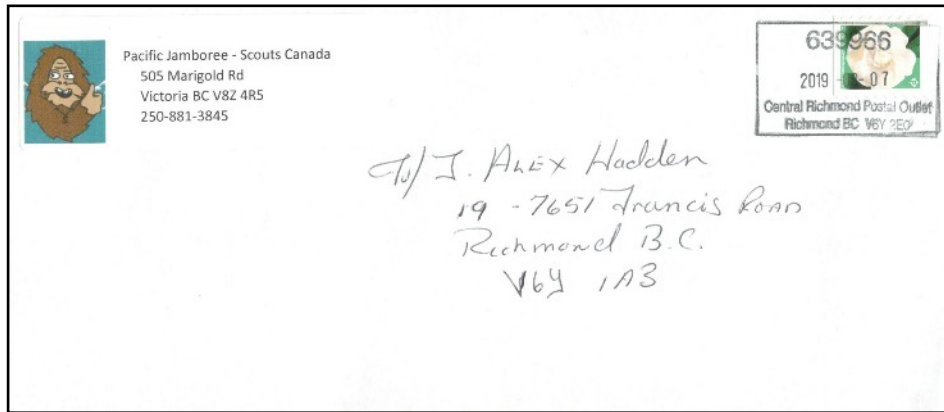 Pacific Jamboree - Scouts Canada
505 Marigold Rd
Victoria BC V8Z 4R5
250-881-3845
639966
2019 - -07
Central Richmond Postal Outlet
Richmond BC V6Y 2E0
J. ALEX Hadden
19 - 7651 Francis ROAD
Richmond B.C.
V6Y 1A3